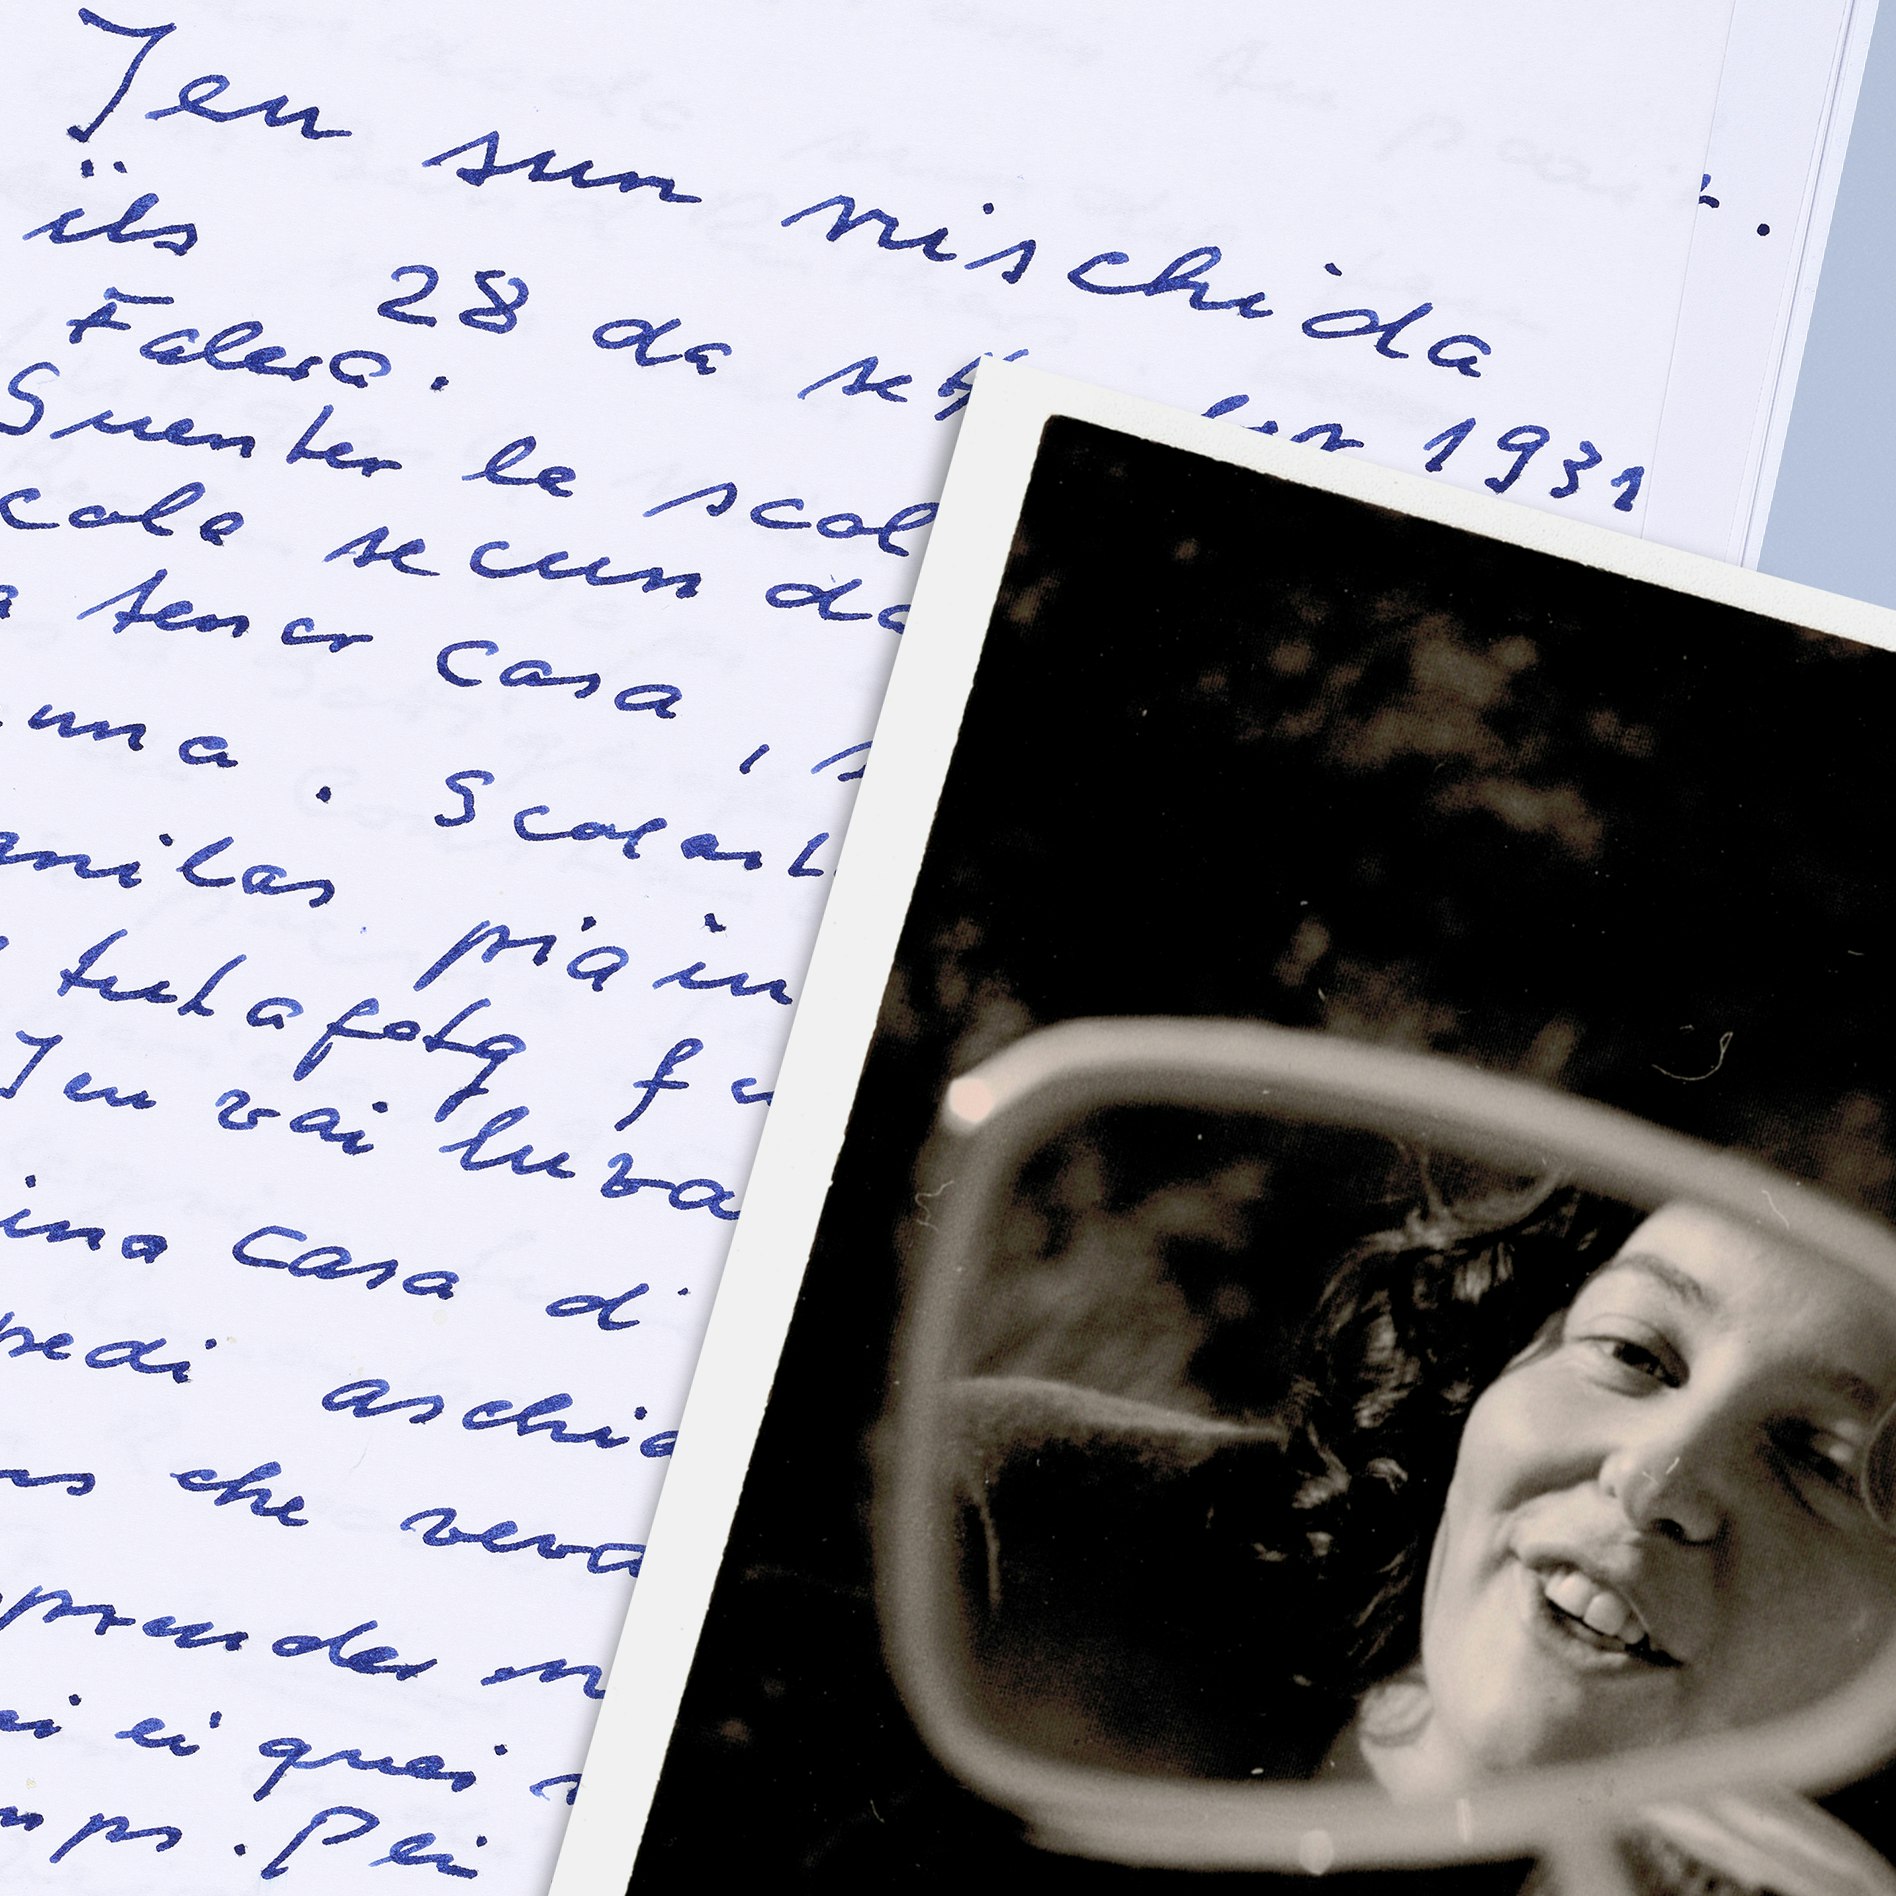 Jeu sun nischida
ils 28 da set ber 1931
Falera.
Suenter la scol
cola secunda
a tener casa, s
una. Scolast
gnilas pia in
tut a fatg fu
Jeu vai luva
ina casa d'
pedi aschia
ns che veva
prender m
ei quei
mps. Pei